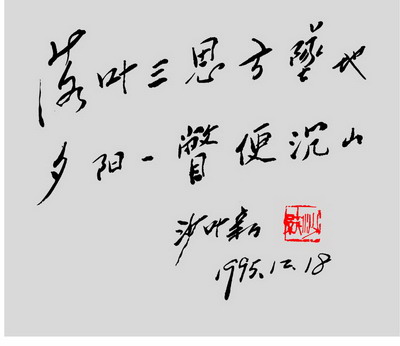 落叶三思方墜地
夕阳一瞥便沉山
沙叶新
1995.12.18